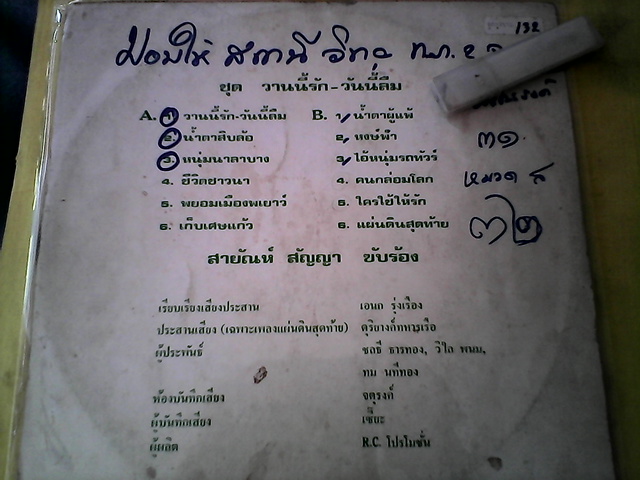 132
มอบให้ สถานี วิทยุ
ชุด วานนี้รัก-วันนี้ลืม
A. 1. วานนี้รัก-วันนี้ลืม B. 1. น้ำตาผู้แพ้
2. น้ำตาสิบล้อ 2. หงษ์ฟ้า
3. หนุ่มนาลาบาง 3. ไอ้หนุ่มรถทัวร์
๓๑.
4. ชีวิตชาวนา 4. คนกล่อมโลก
หมวด ส
5. พยอมเมืองพเยาว์ 5. ใครใช้ให้รัก
6. เก็บเศษแก้ว 6. แผ่นดินสุดท้าย
๓๒
สายัณห์ สัญญา ขับร้อง
เรียบเรียงเสียงประสาน เอนก รุ่งเรือง
ประสานเสียง (เฉพาะเพลงแผ่นดินสุดท้าย) ดุริยางค์ทหารเรือ
ผู้ประพันธ์ ชลธี ธารทอง, วิไล พนม,
ทม นทีทอง
ห้องบันทึกเสียง จตุรงค์
ผู้บันทึกเสียง
ผู้ผลิต R.C. โปรโมชั่น